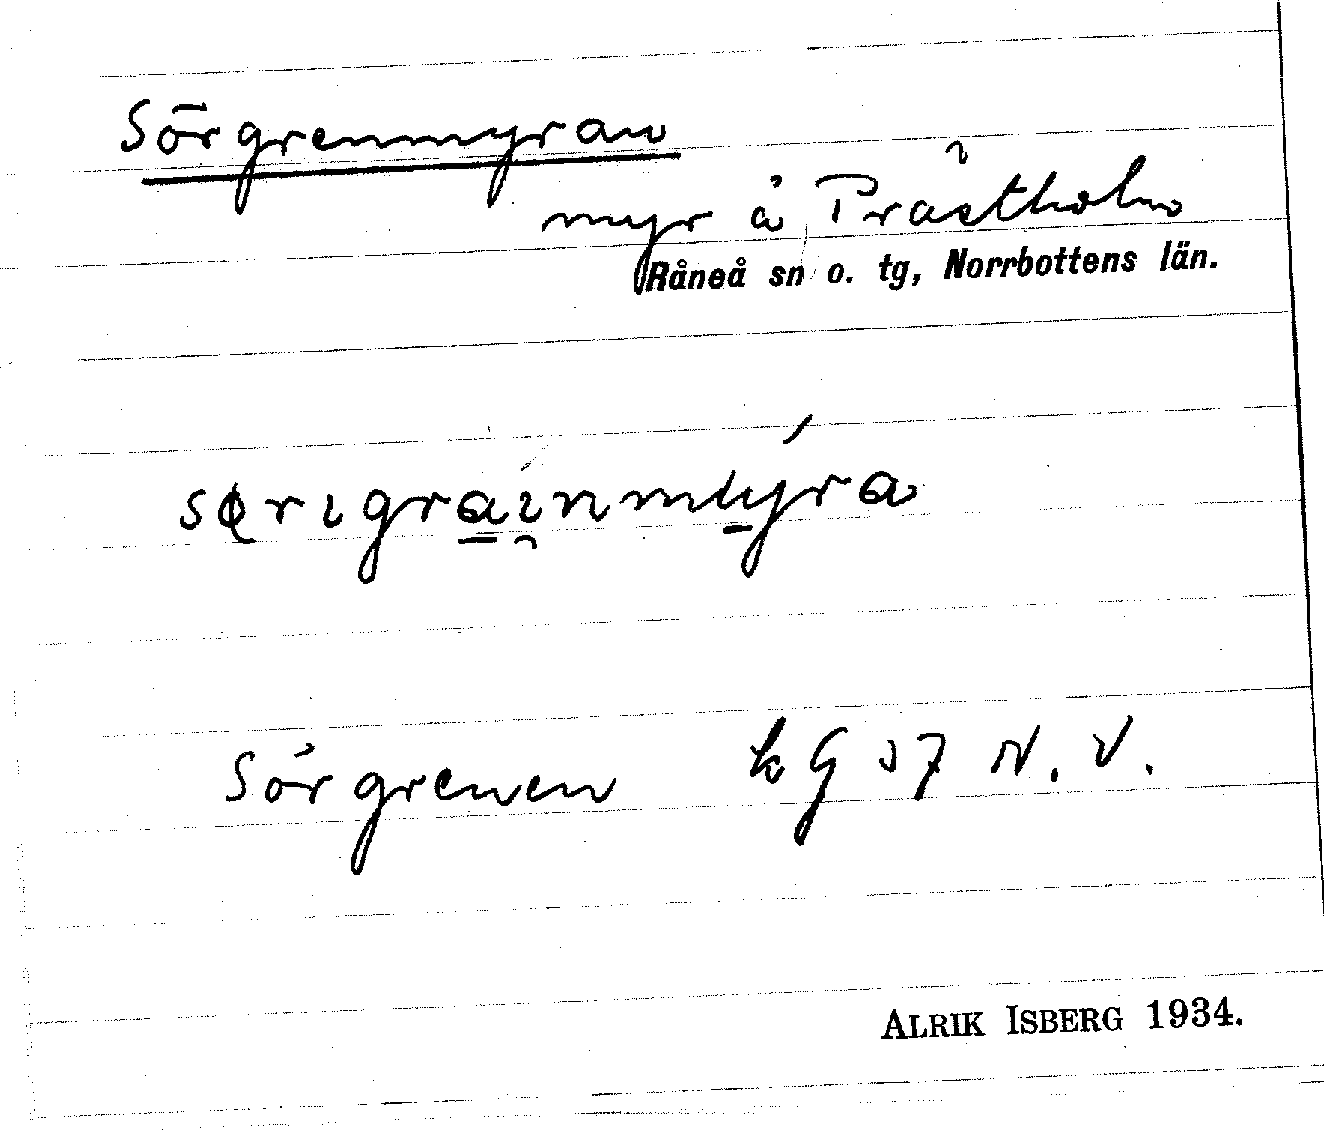 Sörgrenmyran
myr å Prästholm
Råneå sn o. tg, Norrbottens län.
Sörgrenen kG 57 N.V.
ALRIK ISBERG 1934.